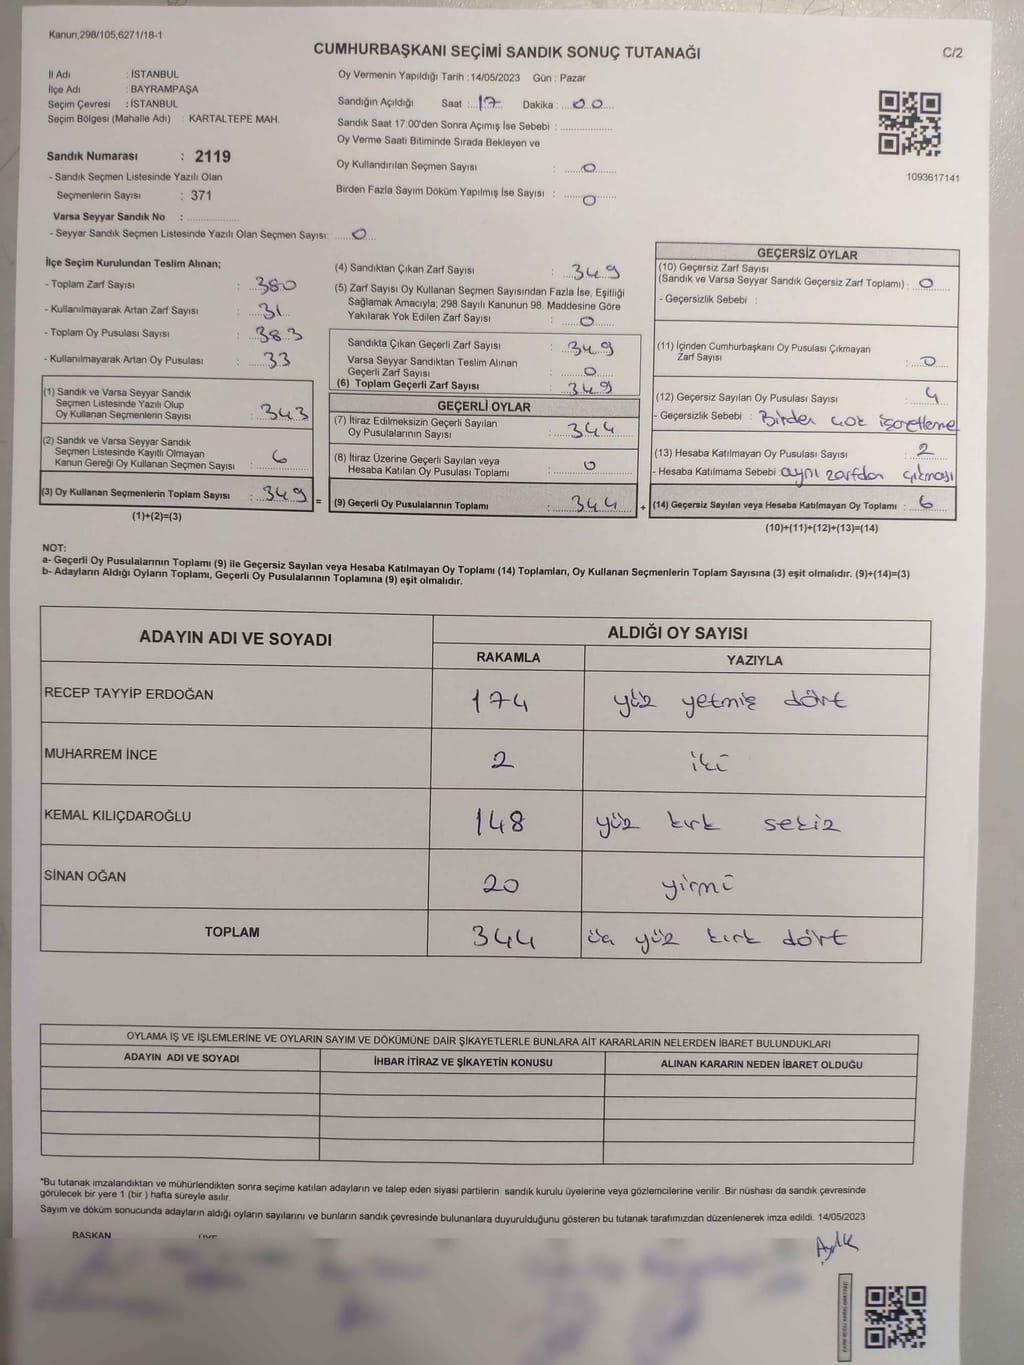 Kanun,298/105,6271/18-1
CUMHURBAŞKANI SEÇİMİ SANDIK SONUÇ TUTANAĞI
C/2
İl Adı : İSTANBUL
İlçe Adı : BAYRAMPAŞA
Seçim Çevresi : İSTANBUL
Seçim Bölgesi (Mahalle Adı) : KARTALTEPE MAH.
Sandık Numarası : 2119
- Sandık Seçmen Listesinde Yazılı Olan
Seçmenlerin Sayısı : 371
Varsa Seyyar Sandık No : ..................
- Seyyar Sandık Seçmen Listesinde Yazılı Olan Seçmen Sayısı: 0
Oy Vermenin Yapıldığı Tarih : 14/05/2023 Gün : Pazar
Sandığın Açıldığı Saat : 17 Dakika : 00
Sandık Saat 17:00'den Sonra Açımış İse Sebebi : ..................
Oy Verme Saati Bitiminde Sırada Bekleyen ve
Oy Kullandırılan Seçmen Sayısı : 0
Birden Fazla Sayım Döküm Yapılmış İse Sayısı : 0
1093617141
İlçe Seçim Kurulundan Teslim Alınan;
- Toplam Zarf Sayısı : 380
- Kullanılmayarak Artan Zarf Sayısı : 31
- Toplam Oy Pusulası Sayısı : 383
- Kullanılmayarak Artan Oy Pusulası : 33
(1) Sandık ve Varsa Seyyar Sandık
Seçmen Listesinde Yazılı Olup
Oy Kullanan Seçmenlerin Sayısı : 343
(2) Sandık ve Varsa Seyyar Sandık
Seçmen Listesinde Kayıtlı Olmayan
Kanun Gereği Oy Kullanan Seçmen Sayısı : 6
(3) Oy Kullanan Seçmenlerin Toplam Sayısı : 349 =
(1)+(2)=(3)
(4) Sandıktan Çıkan Zarf Sayısı : 349
(5) Zarf Sayısı Oy Kullanan Seçmen Sayısından Fazla İse, Eşitliği
Sağlamak Amacıyla; 298 Sayılı Kanunun 98. Maddesine Göre
Yakılarak Yok Edilen Zarf Sayısı : 0
Sandıkta Çıkan Geçerli Zarf Sayısı : 349
Varsa Seyyar Sandıktan Teslim Alınan
Geçerli Zarf Sayısı : 0
(6) Toplam Geçerli Zarf Sayısı : 349
GEÇERLİ OYLAR
(7) İtiraz Edilmeksizin Geçerli Sayılan
Oy Pusulalarının Sayısı : 344
(8) İtiraz Üzerine Geçerli Sayılan veya
Hesaba Katılan Oy Pusulası Toplamı : 0
(9) Geçerli Oy Pusulalarının Toplamı : 344 +
GEÇERSİZ OYLAR
(10) Geçersiz Zarf Sayısı
(Sandık ve Varsa Seyyar Sandık Geçersiz Zarf Toplamı) : 0
- Geçersizlik Sebebi :
(11) İçinden Cumhurbaşkanı Oy Pusulası Çıkmayan
Zarf Sayısı : 0
(12) Geçersiz Sayılan Oy Pusulası Sayısı : 4
- Geçersizlik Sebebi : Birden çok işaretleme
(13) Hesaba Katılmayan Oy Pusulası Sayısı : 2
- Hesaba Katılmama Sebebi : aynı zarfdan çıkması
(14) Geçersiz Sayılan veya Hesaba Katılmayan Oy Toplamı : 6
(10)+(11)+(12)+(13)=(14)
NOT:
a- Geçerli Oy Pusulalarının Toplamı (9) ile Geçersiz Sayılan veya Hesaba Katılmayan Oy Toplamı (14) Toplamları, Oy Kullanan Seçmenlerin Toplam Sayısına (3) eşit olmalıdır. (9)+(14)=(3)
b- Adayların Aldığı Oyların Toplamı, Geçerli Oy Pusulalarının Toplamına (9) eşit olmalıdır.
ADAYIN ADI VE SOYADI
ALDIĞI OY SAYISI
RAKAMLA YAZIYLA
RECEP TAYYİP ERDOĞAN 174 yüz yetmiş dört
MUHARREM İNCE 2 iki
KEMAL KILIÇDAROĞLU 148 yüz kırk sekiz
SİNAN OĞAN 20 yirmi
TOPLAM 344 üç yüz kırk dört
OYLAMA İŞ VE İŞLEMLERİNE VE OYLARIN SAYIM VE DÖKÜMÜNE DAİR ŞİKAYETLERLE BUNLARA AİT KARARLARIN NELERDEN İBARET BULUNDUKLARI
ADAYIN ADI VE SOYADI İHBAR İTİRAZ VE ŞİKAYETİN KONUSU ALINAN KARARIN NEDEN İBARET OLDUĞU
*Bu tutanak imzalandıktan ve mühürlendikten sonra seçime katılan adayların ve talep eden siyasi partilerin sandık kurulu üyelerine veya gözlemcilerine verilir .Bir nüshası da sandık çevresinde
görülecek bir yere 1 (bir ) hafta süreyle asılır.
Sayım ve döküm sonucunda adayların aldığı oyların sayılarını ve bunların sandık çevresinde bulunanlara duyurulduğunu gösteren bu tutanak tarafımızdan düzenlenerek imza edildi. 14/05/2023
BAŞKAN ÜYE